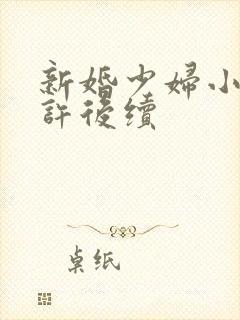 新婚少婦小
許後續
卓纸